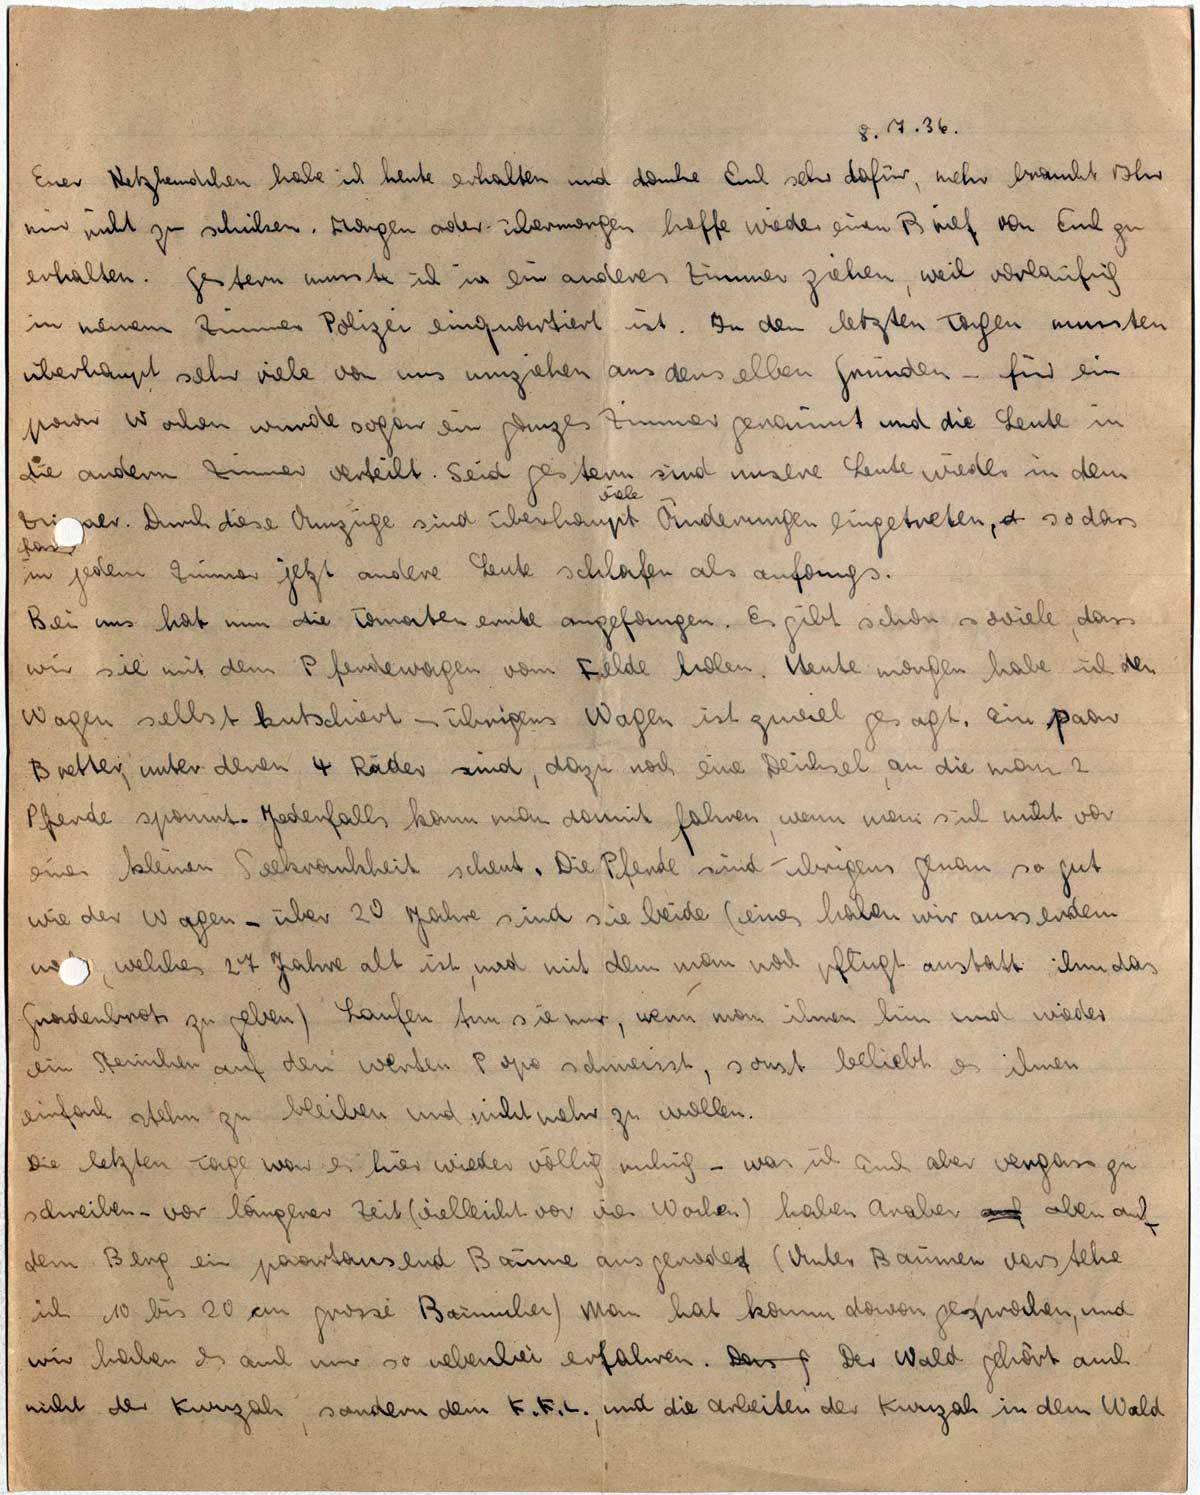 8.7.36.
Euer Netzhemdchen habe ich heute erhalten und danke Euch sehr dafür, mehr braucht Ihr
mir nicht zu schicken. Morgen oder übermorgen hoffe wieder einen Brief von Euch zu
erhalten. Gestern musste ich in ein anderes Zimmer ziehen, weil vorläufig
in meinem Zimmer Polizei einquartiert ist. In den letzten Tagen mussten
überhaupt sehr viele von uns umziehen aus denselben Gründen – für ein
paar Wochen wurde sogar ein ganzes Zimmer geräumt und die Leute in
die andern Zimmer verteilt. Seid gestern sind unsere Leute wieder in dem
Zimmer. Durch diese Umzüge sind überhaupt viele Änderungen eingetreten, so dass
fast
in jedem Zimmer jetzt andere Leute schlafen als anfangs.
Bei uns hat nun die Tomatenernte angefangen. Es gibt schon soviele, dass
wir sie mit dem Pferdewagen vom Felde holen. Heute morgen habe ich den
Wagen selbst kutschiert – übrigens Wagen ist zuviel gesagt. Ein paar
Bretter, unter denen 4 Räder sind, dazu noch eine Deichsel, an die man 2
Pferde spannt. Jedenfalls kann man damit fahren, wenn man sich nicht vor
einer kleinen Seekrankheit scheut. Die Pferde sind übrigens genau so gut
wie der Wagen – über 20 Jahre sind sie beide (eines haben wir ausserdem
noch, welches 27 Jahre alt ist, und mit dem man noch pflügt anstatt ihm das
Gnadenbrot zu geben) Laufen tun sie nur, wenn man ihnen hin und wieder
ein Steinchen auf den werten Popo schmeisst, sonst beliebt es ihnen
einfach stehn zu bleiben und nicht mehr zu wollen.
Die letzten Tage war es hier wieder völlig ruhig – was ich Euch aber vergass zu
schreiben – vor längerer Zeit (vielleicht vor vier Wochen) haben Araber oben auf
dem Berg ein paartausend Bäume ausgerodet (Unter Bäumen verstehe
ich 10 bis 20 cm grosse Bäumchen) Man hat kaum davon gesprochen, und
wir haben es auch nur so nebenbei erfahren. Der Wald gehört auch
nicht der Kwuzah, sondern dem K.K.L., und die arbeiten der Kwuzah in dem Wald